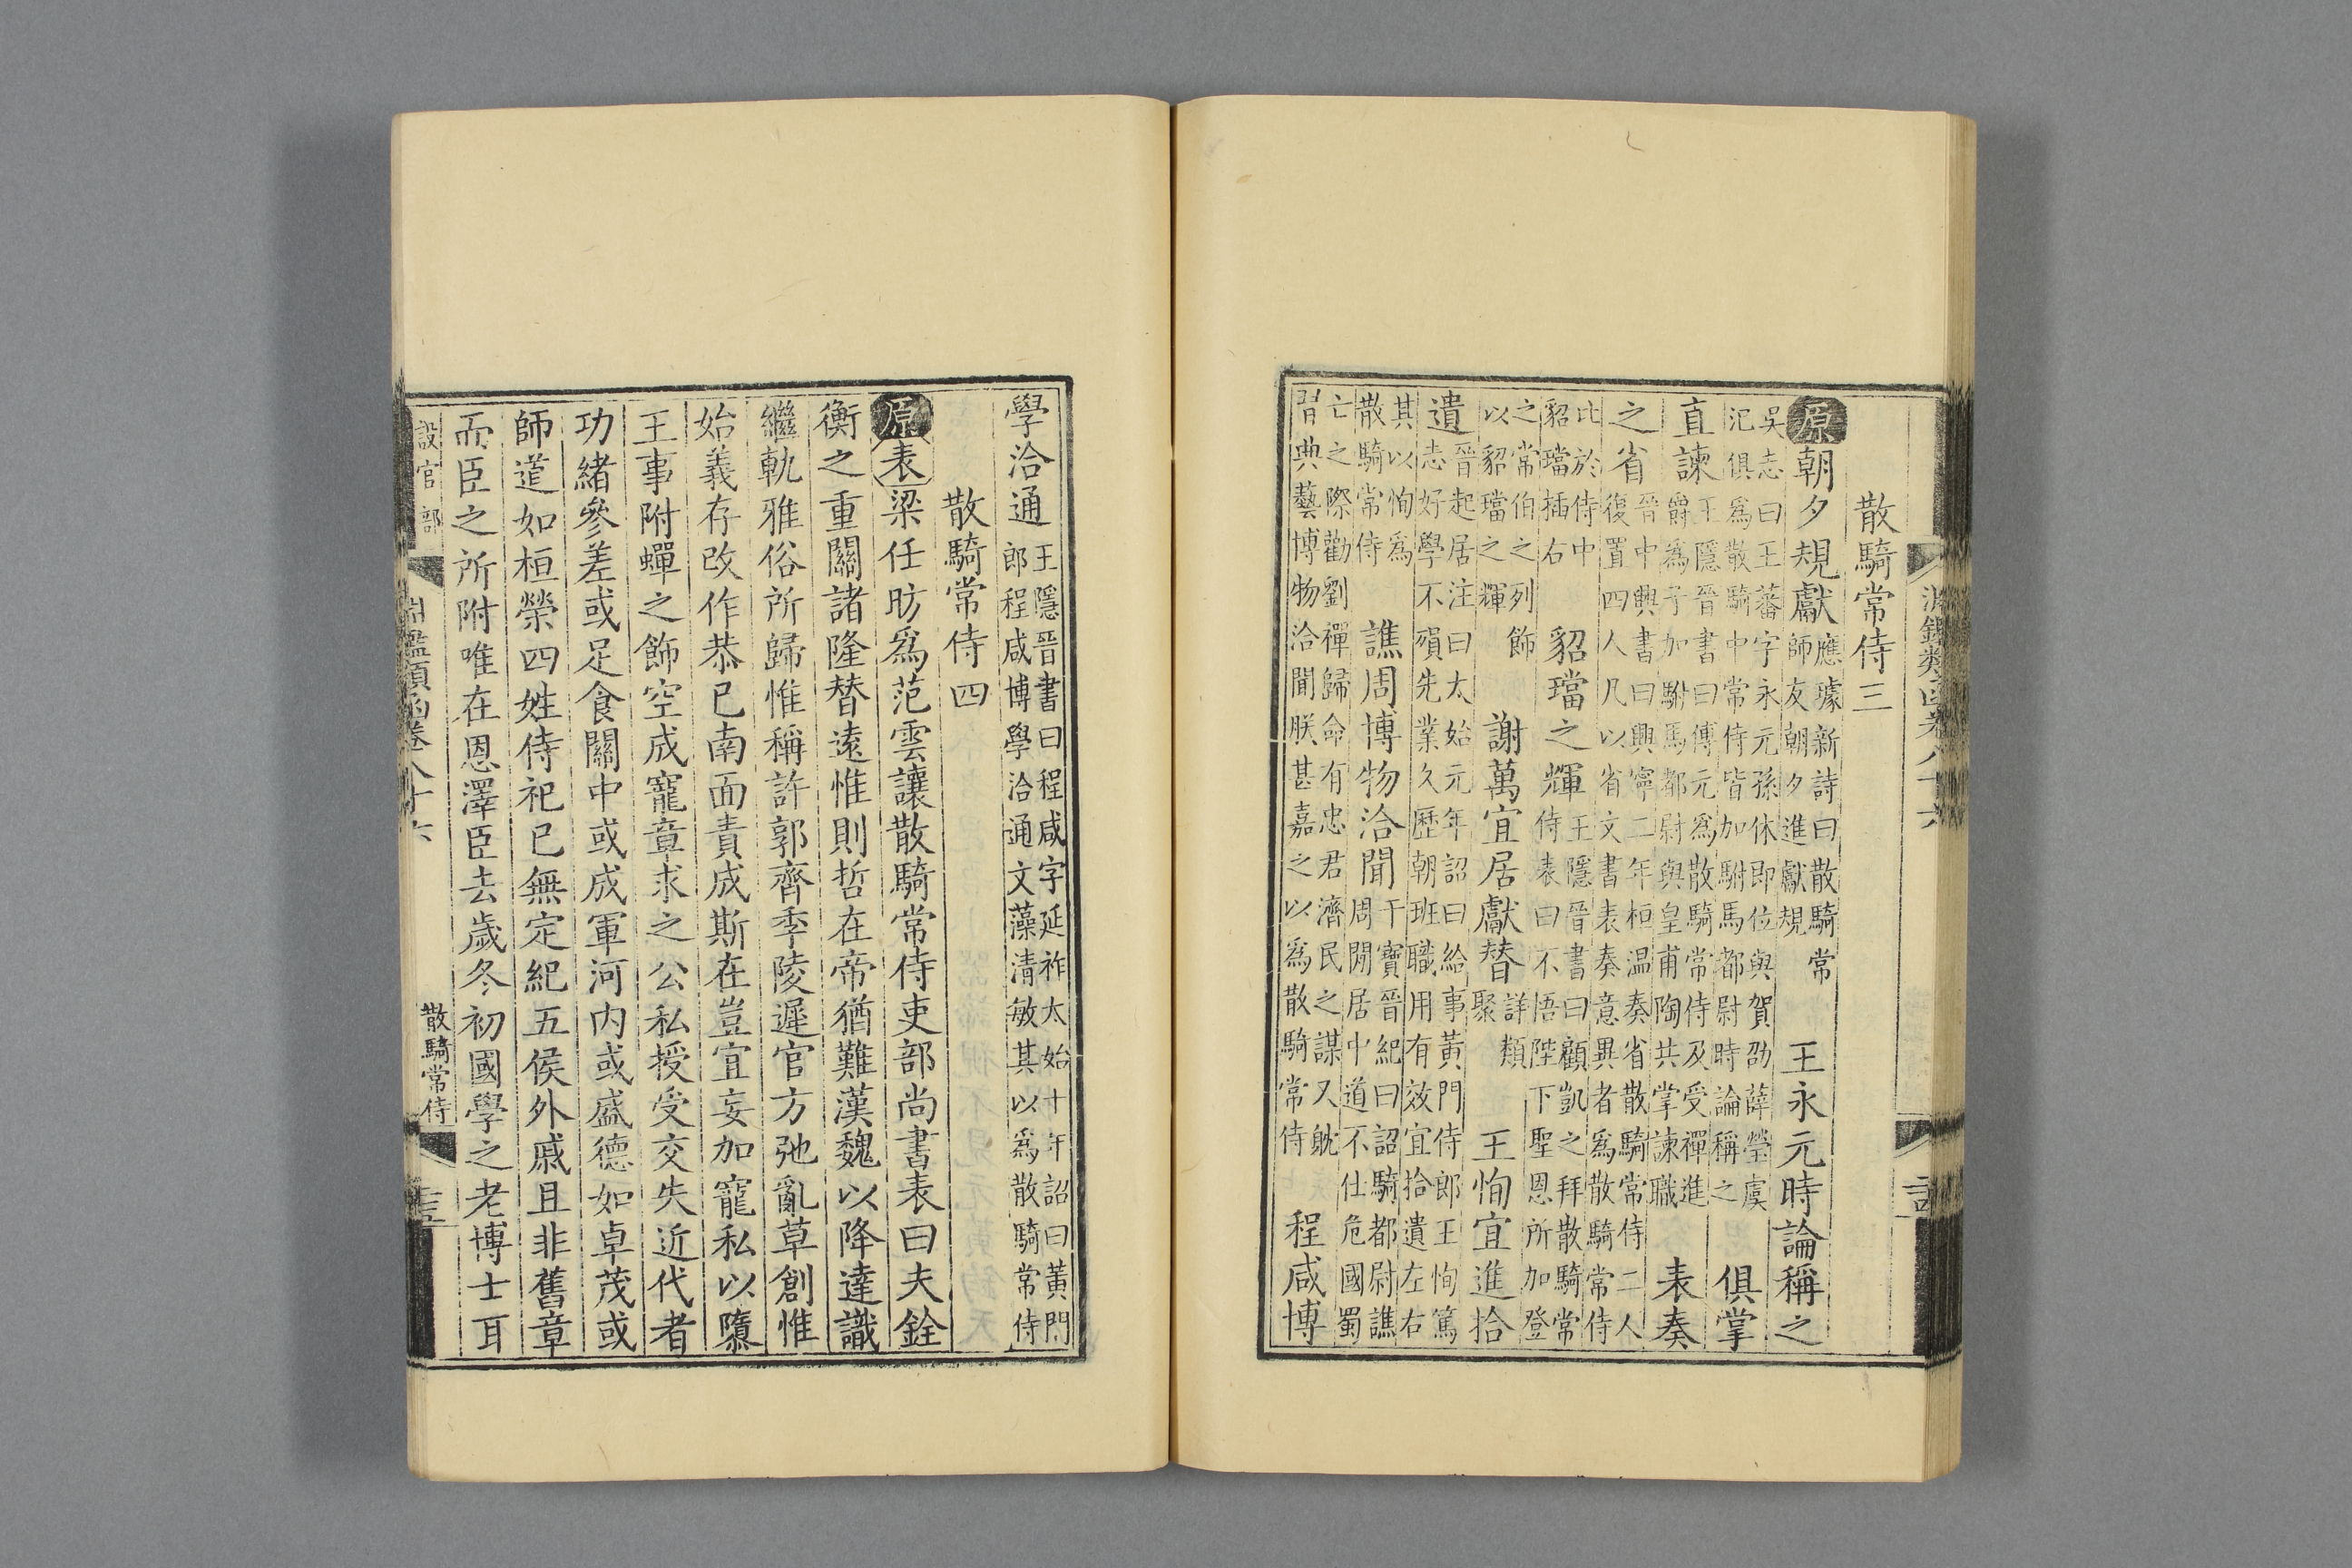 散騎常侍三
原朝夕規獻應璩新詩曰散騎常師友朝夕進獻規王永元時論稱之
吳志曰王蕃字永元孫休即位與賀劭薛瑩虞汜俱爲散騎中常侍皆加駙馬都尉時論稱之俱掌
直諫王隱晉書曰傅元爲散騎常侍及受禪進爵爲子加駙馬都尉與皇甫陶共掌諫職表奏
之省晉中興書曰興寧二年桓温奏省散騎常侍二人復置四人凡以省文書表奏意異者爲散騎常侍
比於侍中貂璫插右貂璫之輝王隱晉書曰顧凱之拜散騎常侍表曰不悟陛下聖恩所加登
之常伯之列飾以貂璫之輝謝萬宜居獻替詳類聚王恂宜進拾
遺晉起居注曰太始元年詔曰給事黃門侍郎王恂篤志好學不殞先業久歷朝班職用有效宜拾遺左右
其以恂爲散騎常侍譙周博物洽聞干寶晉紀曰詔騎都尉譙周閒居中道不仕危國蜀
亡之際勸劉禪歸命有忠君濟民之謀又躭習典藝博物洽聞朕甚嘉之以爲散騎常侍程咸博
學洽通王隱晉書曰程咸字延祚太始十年詔曰黃門郎程咸博學洽通文藻清敏其以爲散騎常侍
散騎常侍四
原表梁任昉爲范雲讓散騎常侍吏部尚書表曰夫銓
衡之重關諸隆替遠惟則哲在帝猶難漢魏以降達識
繼軌雅俗所歸惟稱許郭齊季陵遲官方弛亂草創惟
始義存改作恭已南面責成斯在豈宜妄加寵私以隳
王事附蟬之飾空成寵章求之公私授受交失近代者
功緒參差或足食關中或成軍河内或盛德如卓茂或
師道如桓榮四姓侍祀已無定紀五侯外戚且非舊章
而臣之所附唯在恩澤臣去歲冬初國學之老博士耳
設官部 淵鑑類函卷八十六 散騎常侍